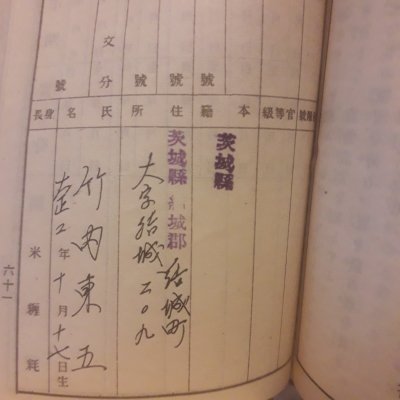 號
號
號
文分
號
官等級
本籍
茨城縣
住所
茨城縣 結城郡 結城町
大字結城二〇九
氏名
竹内東五
年十月十七日生
身長
米糎粍
六十一